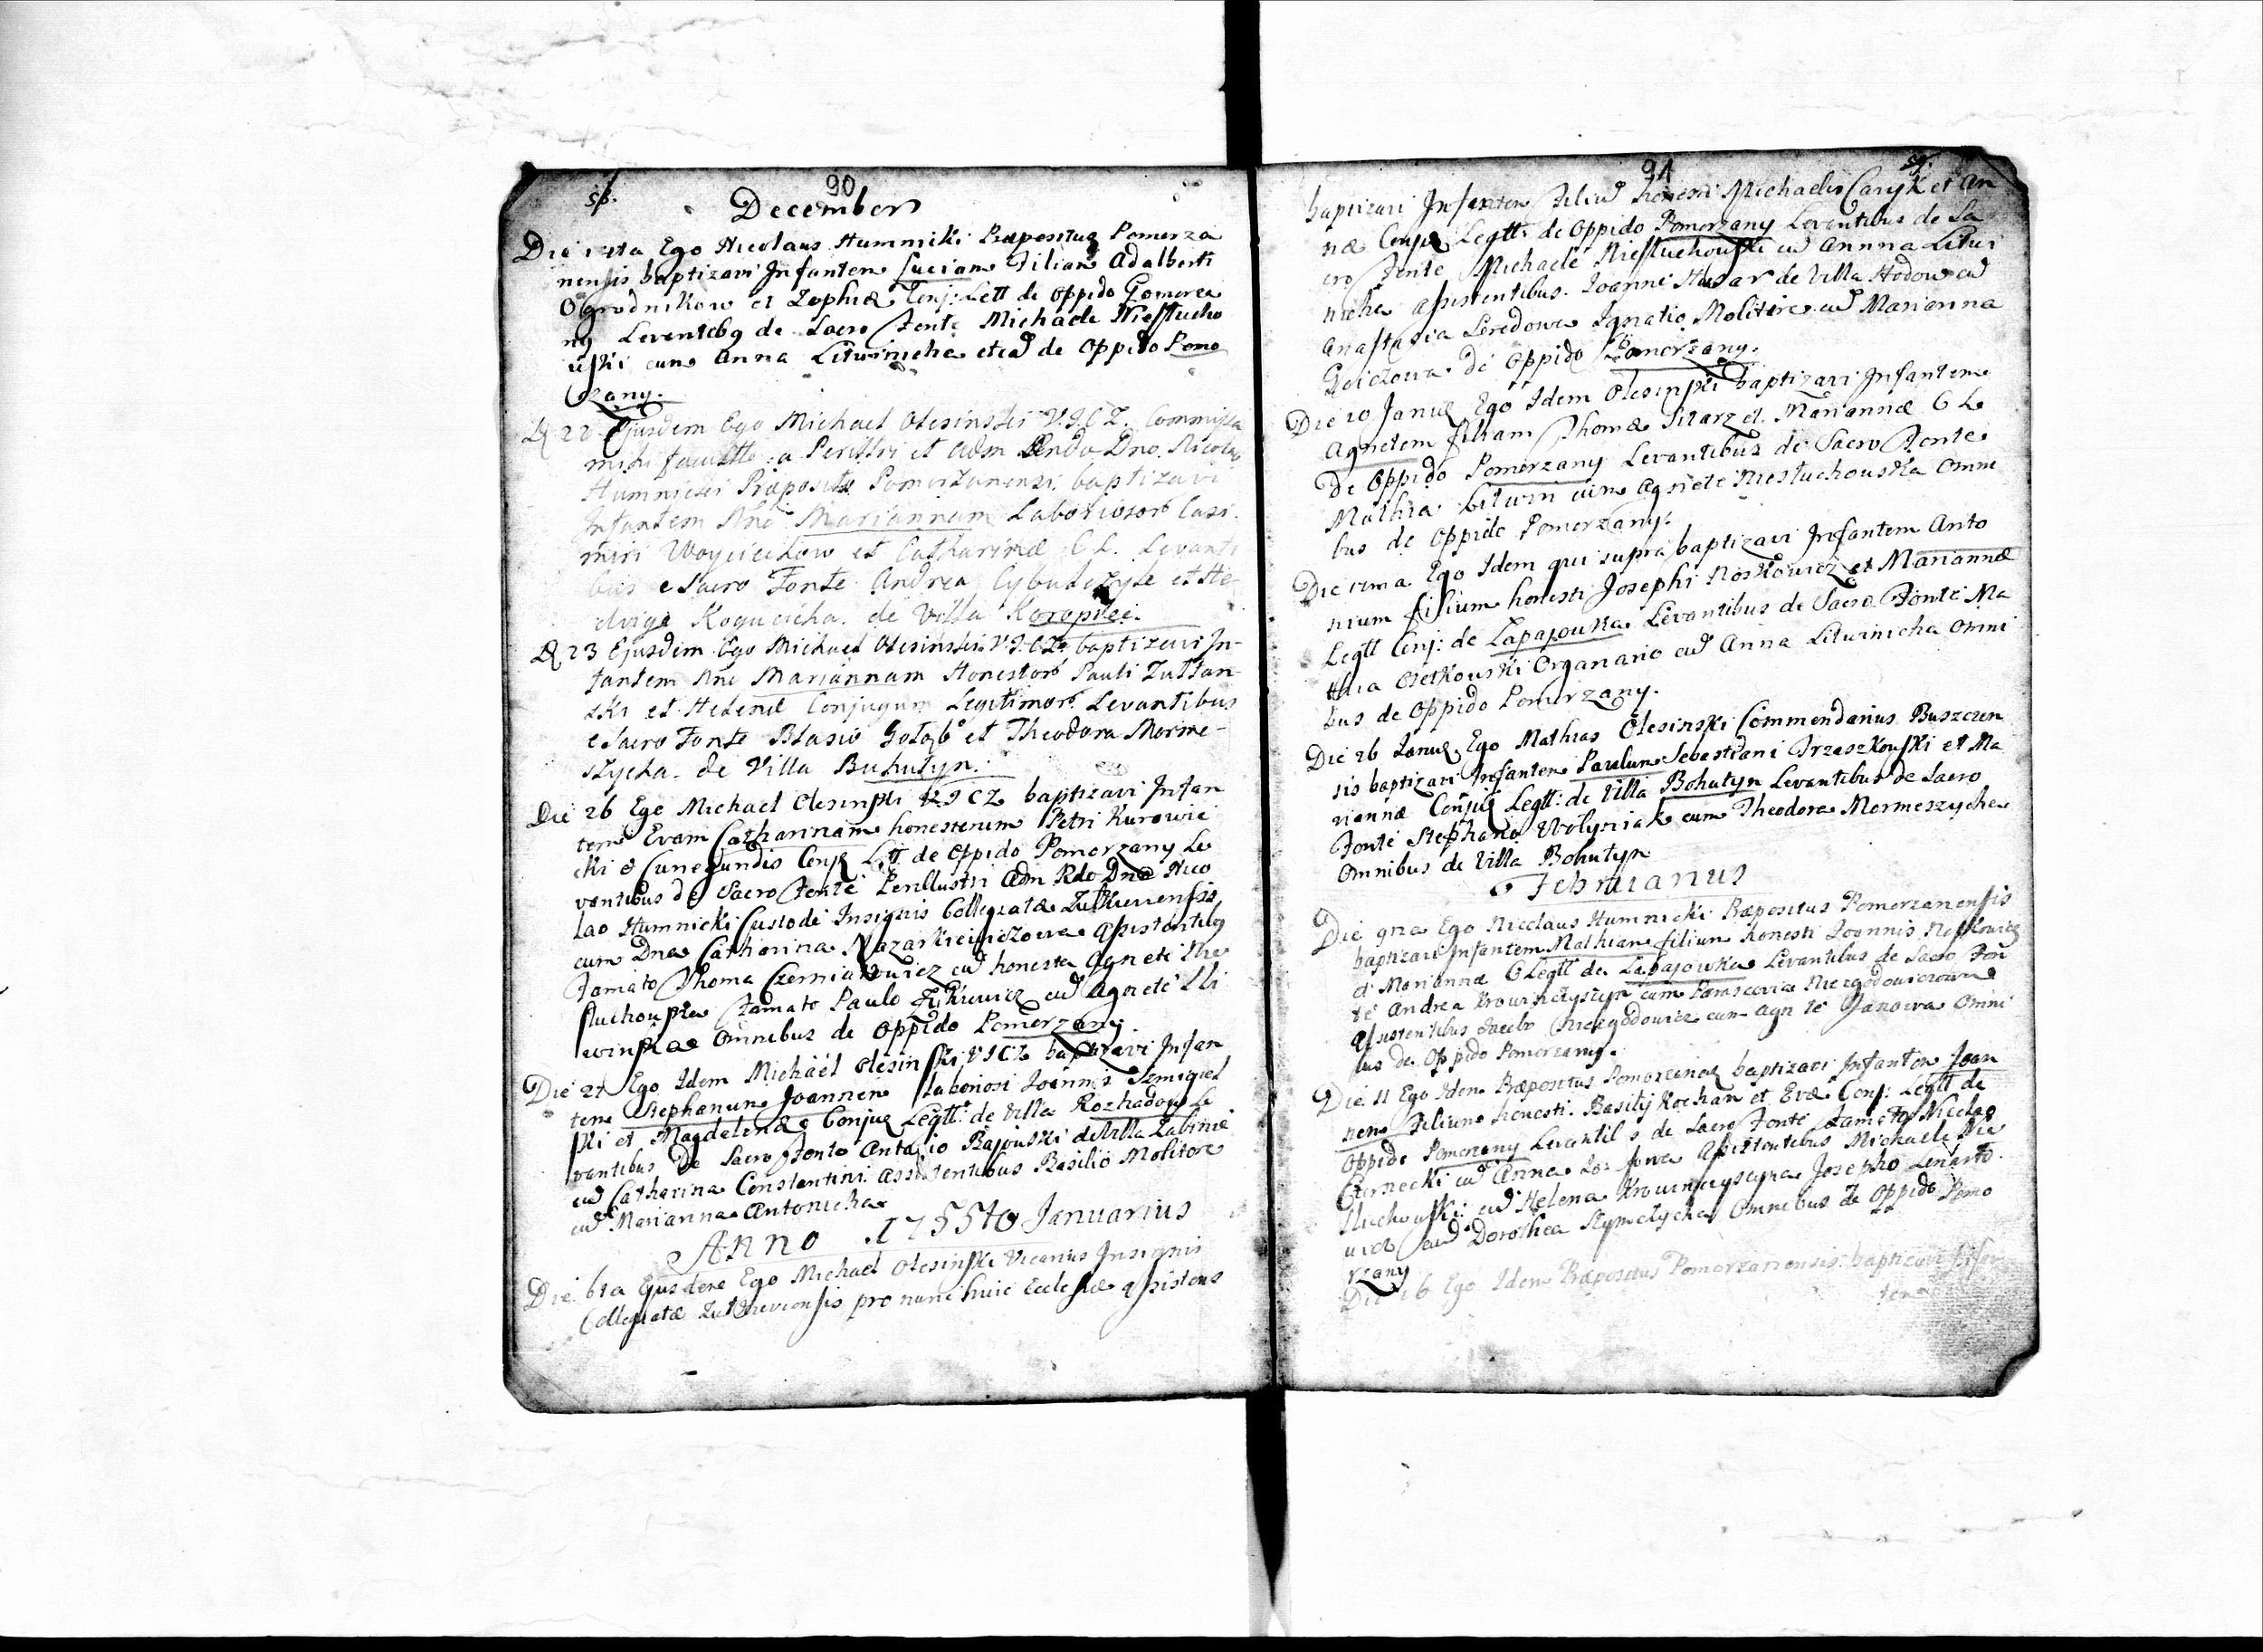 90
December
Die 1sta Ego Nicolaus Humniki Præpositus Pomerza
nensis baptizavi Infantem Luciam Filiam Adalberti
Ogrodnikow et Zophiæ Conj: Lett de oppido Pomerza
ny Levantibq de Sacro Fonte Michaele Niestucho
uski cum Anna Lituinicha etiã de oppido Pomo
rzany.
D 22 Ejusdem Ego Michael Olesinski V.I.C.Z. Commissa
mihi facultte a Perillri et Adm Rndo Dno. Nicolao
Humnicki Præposito Pomorzanensi baptizavi
Infantem Nne Mariannam Laboriosor Casi
miri Woyciciow et Catharinæ C L. Levanti
bus e Sacro Fonte Andrea Cybulczyk et He
dvige Kogucicha de Villa Koropiec.
D 23 Ejusdem Ego Michael Olesinski V.I.C.Z. baptizavi In-
fantem Nne Mariannam Honestor Pauli Zultan-
ski et Helenæ Conjugum Legitimor Levantibus
e Sacro Fonte Blasio Gołąb et Theodora Morme-
szycha de Villa Buhutyn.
Die 26 Ego Michael Olesinski V I C Z baptizavi Infan
tem Evam Catharinam honestorum Petri Kurowic
cki & Cunegundis Conj Ltt de Oppido Pomorzany Le
vantibus de Sacro Fonte Perillustri Adm Rdo Dno Nico
lao Humnicki Custode Insignis Collegiatæ Zulkieviensis
cum Dna Catharina Nazarkiewiczowa Assistentibq
Famato Thoma Czerniakowicz cũ honesta Agnete Nie
stuchouska Famato Paulo Zukiewicz cũ Agnete Sli
winska Omnibus de Oppido Pomerzany.
Die 27 Ego Idem Michael Olesinski V I C Z baptizavi Infan
tem Stephanum Joannem laboriosi Joannis Szmigiel
ski et Magdalenæ Conjug Legtt: de Villa Rozhadow Le
vantibus de Sacro Fonte Antonio Bajouski de Villa Zabinie
cũ Catharina Constantini Assistentibus Basilio Molitore
cũ Marianna Antonicha
Anno 1755to Januarius
Die 6ta Ejusdem Ego Michael Olesinski Vicarius Insignis
Collegiatæ Zulkieviensis pro nunc huic Ecclesiæ assistens
91
baptizavi Infantem Filiũ honesti Michaelis Caryk et An
næ Conjug Legtt: de Oppido Pomorzany Levantibus de Sa
cro Fonte Michaele Niestuchouski cũ Annna Litui
nicha assistentibus. Joanne Husar de Villa Hodow cũ
Anastasia Seredowa Ignatio Molitore cũ Marianna
de Oppido Pomorzany.
Die 10 Januæ Ego Idem Olesinski baptizavi Infantem
Agnetem filiam Thomæ Sitarz et Mariannæ C L
de Oppido Pomorzany Levantibus de Sacro Fonte
Mathia Lituin cum Agnete Niestuchouska Omni
bus de Oppido Pomorzany.
Die Ego Idem qui supra baptizavi Infantem Anto
nium filium honesti Josephi Noskowicz et Mariannæ
Legtt Conj: de Zapajouka Levantibus de Sacro Fonte Ma
thia Osetkouski Organario cũ Anna Lituinicha Omni
bus de Oppido Pomorzany.
Die 26 Januæ Ego Mathias Olesinski Commendarius Buszczen
sis baptizavi Infantem Paulum Sebestiani Trzaszkouski et Ma
riannæ Conjug Legtt: de Villa Bohutyn Levantibus de Sacro
Fonte Stephano Wolyniak cum Theodora Mormeszycha
Omnibus de Villa Bohutyn
Februarius
Die 9na Ego Nicolaus Humnicki Præpositus Pomorzanensis
baptizavi Infantem Mathiam filium honesti Joannis Noskowicz
et Mariannæ C Legtt de Lapajowka Levantibus de Sacro Fon
te Andrea Krowinczyszyn cum Parascevia Niezgodowiczowna
Assistentibus Jacobo Niezgodowicz cum Agnte Janowa Omni
bus de Oppido Pomorzany.
Die 11 Ego Idem Præpositus Pomorzanens baptizavi Infantem Joan
nem Filium honesti Basilij Kochan et Evæ Conj: Legtt de
Oppido Pomorzany Levantibs de Sacro Fonte Famato Nicolao
Czrnecki cũ Anna Assistentibus Michaele Nie
stuchouski cũ Helena Krowinczyszyna Josepho Lenarto
wicz cũ Dorothea Szymczycha Omnibus de Oppido Pomo
rzany
Die 16 Ego Idem Præpositus Pomorzanensis baptizavi Infan
tem